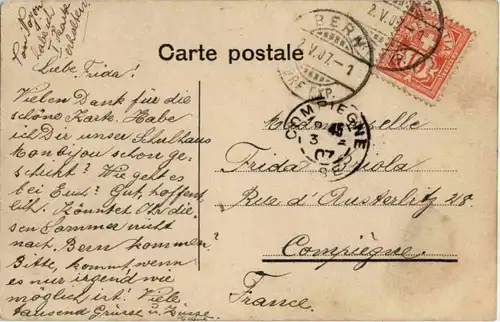 Carte postale
BERN
2.V.07
BERN
V.07.-1
BRF. EXP.
COMPIEGNE
45
3
07
OISE
Liebe Frida!
Vielen Dank für die
schöne Karte. Habe
ich Dir unser Schulhaus
Monbijou schon ge-
schickt? Wie geht es
bei Euch? Gut, hoffent-
lich. Könntet Ihr die-
sen Sommer nicht
nach Bern kommen?
Bitte, kommt wenn
es nur irgend wie
möglich ist. Viele
tausend Grüsse u. Küsse
Mademoiselle
Frida
Rue d'Austerlitz 28.
Compiègne
France.